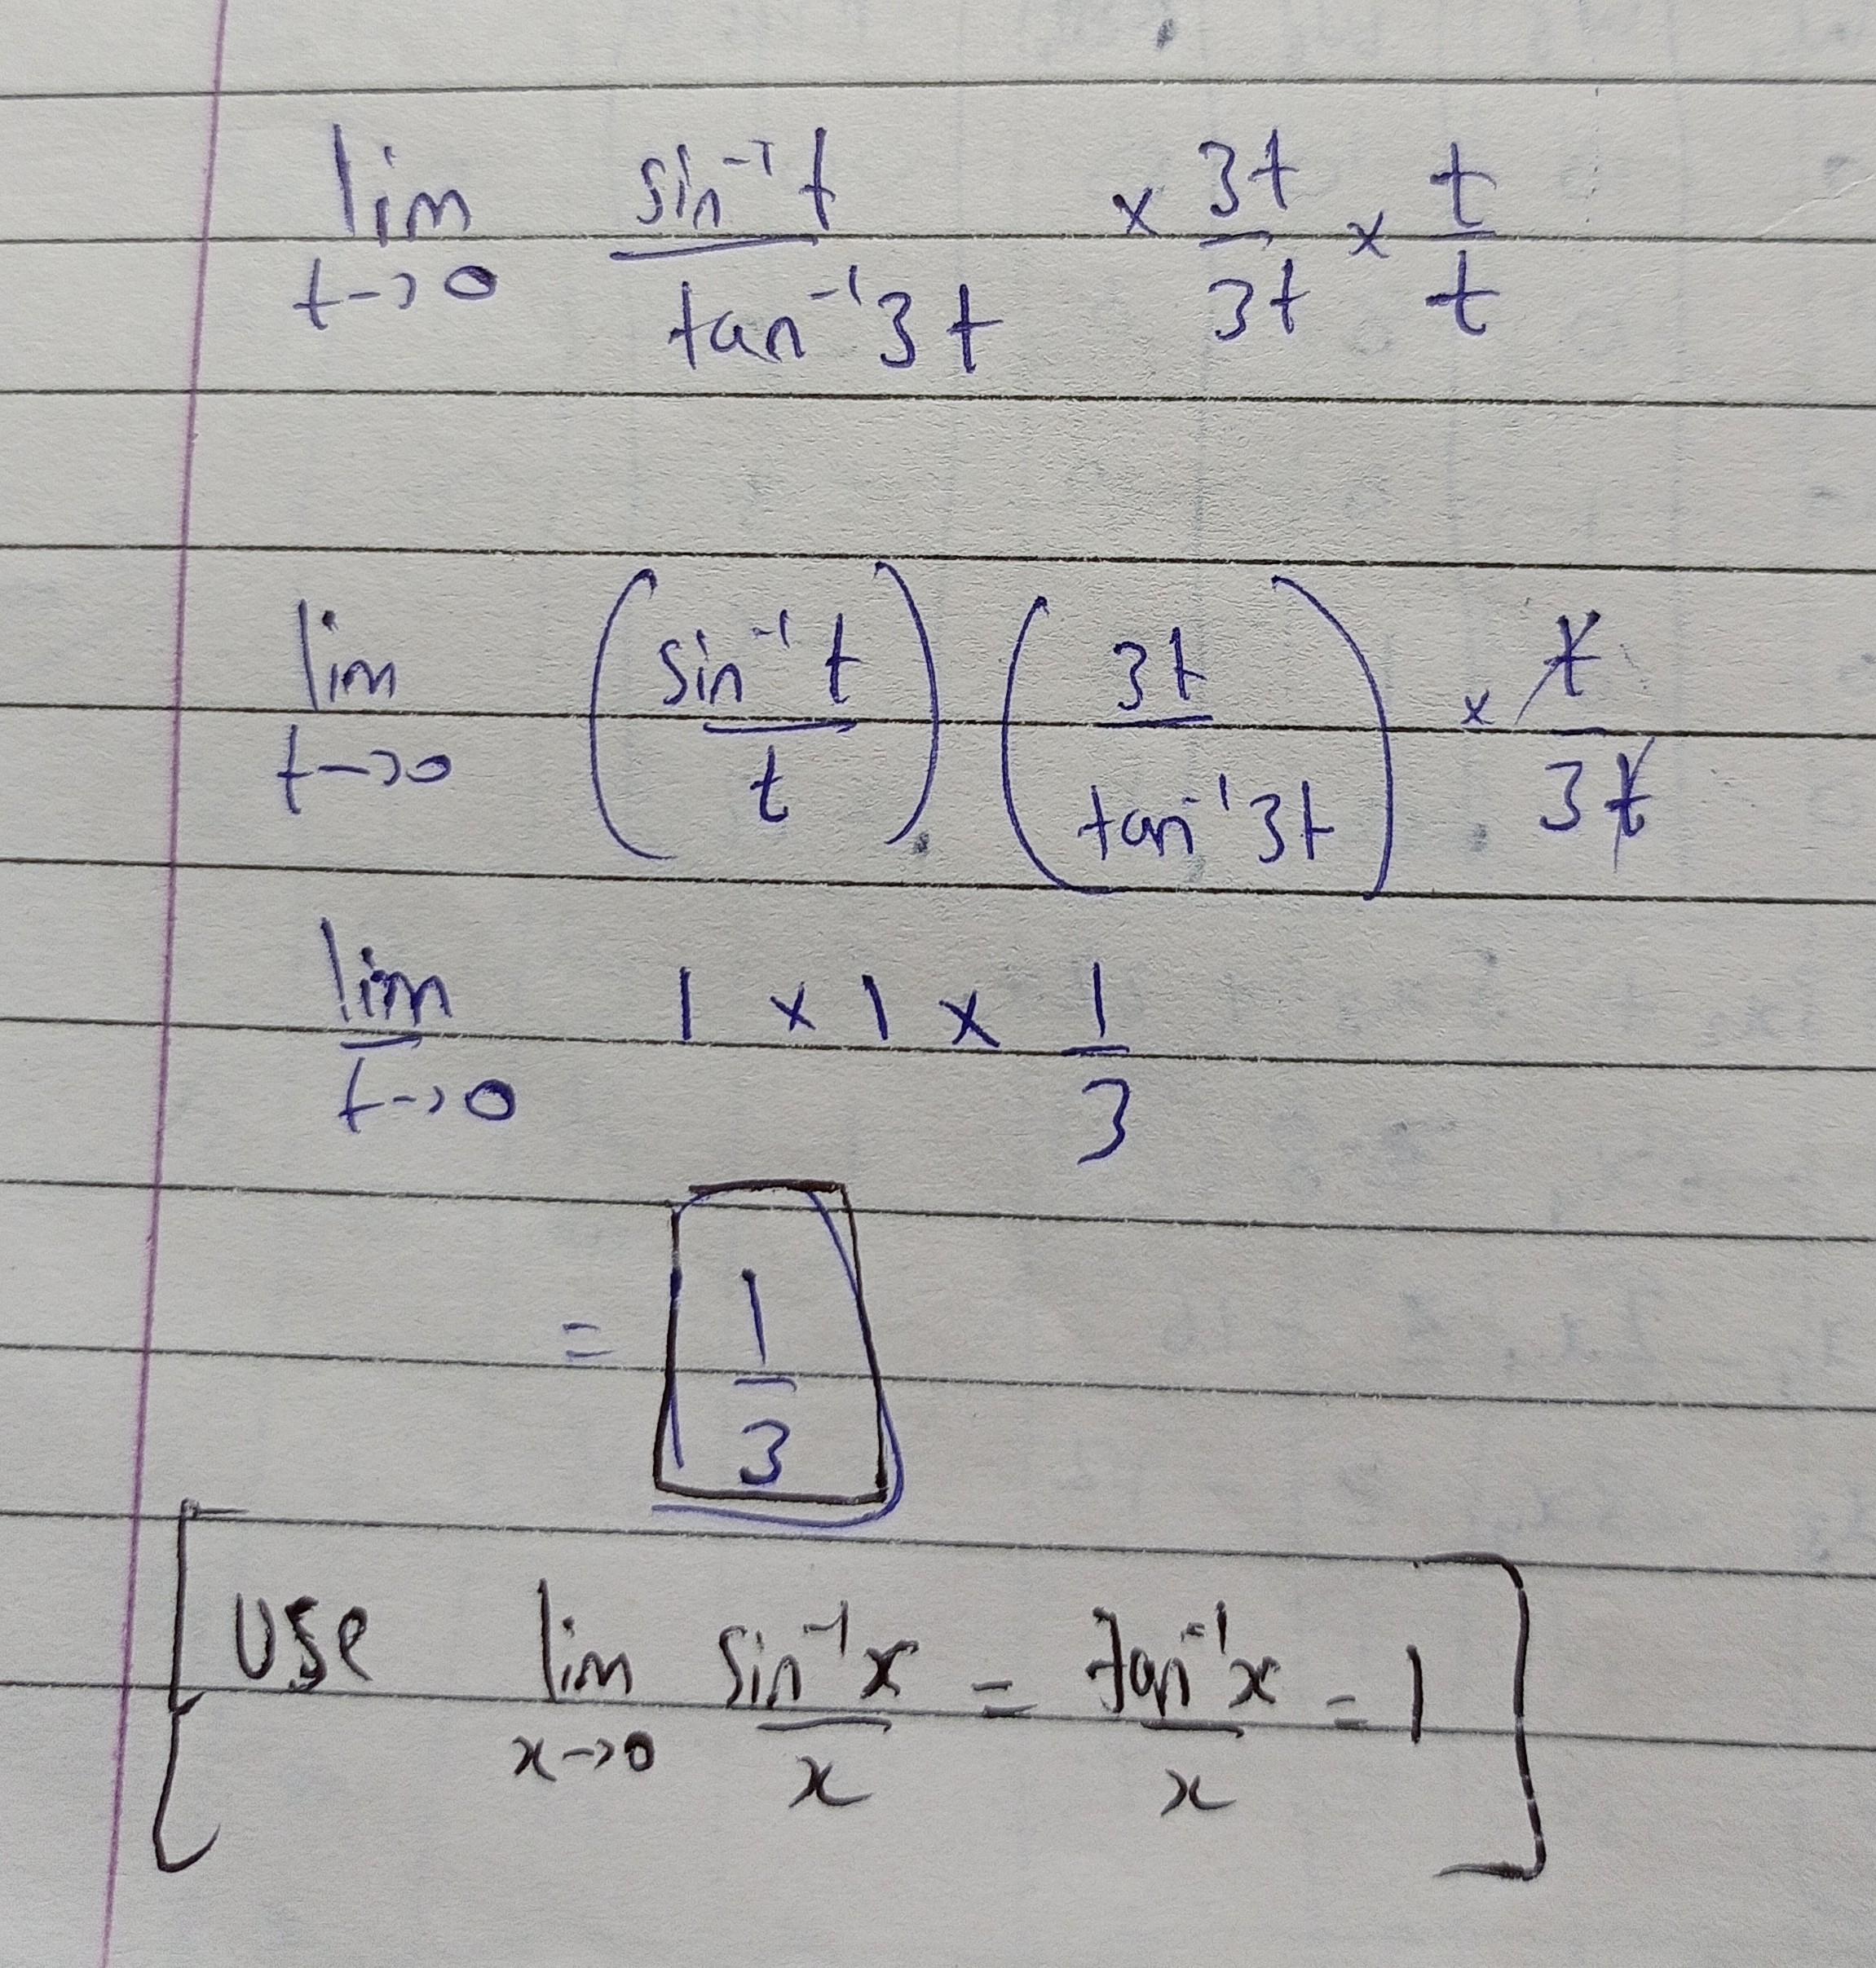 lim t→0 sin⁻¹t / tan⁻¹3t × 3t/3t × t/t
lim t→0 (sin⁻¹t / t) (3t / tan⁻¹3t) × t/3t
lim t→0 1 × 1 × 1/3
= 1/3
[Use lim x→0 sin⁻¹x / x = tan⁻¹x / x = 1]